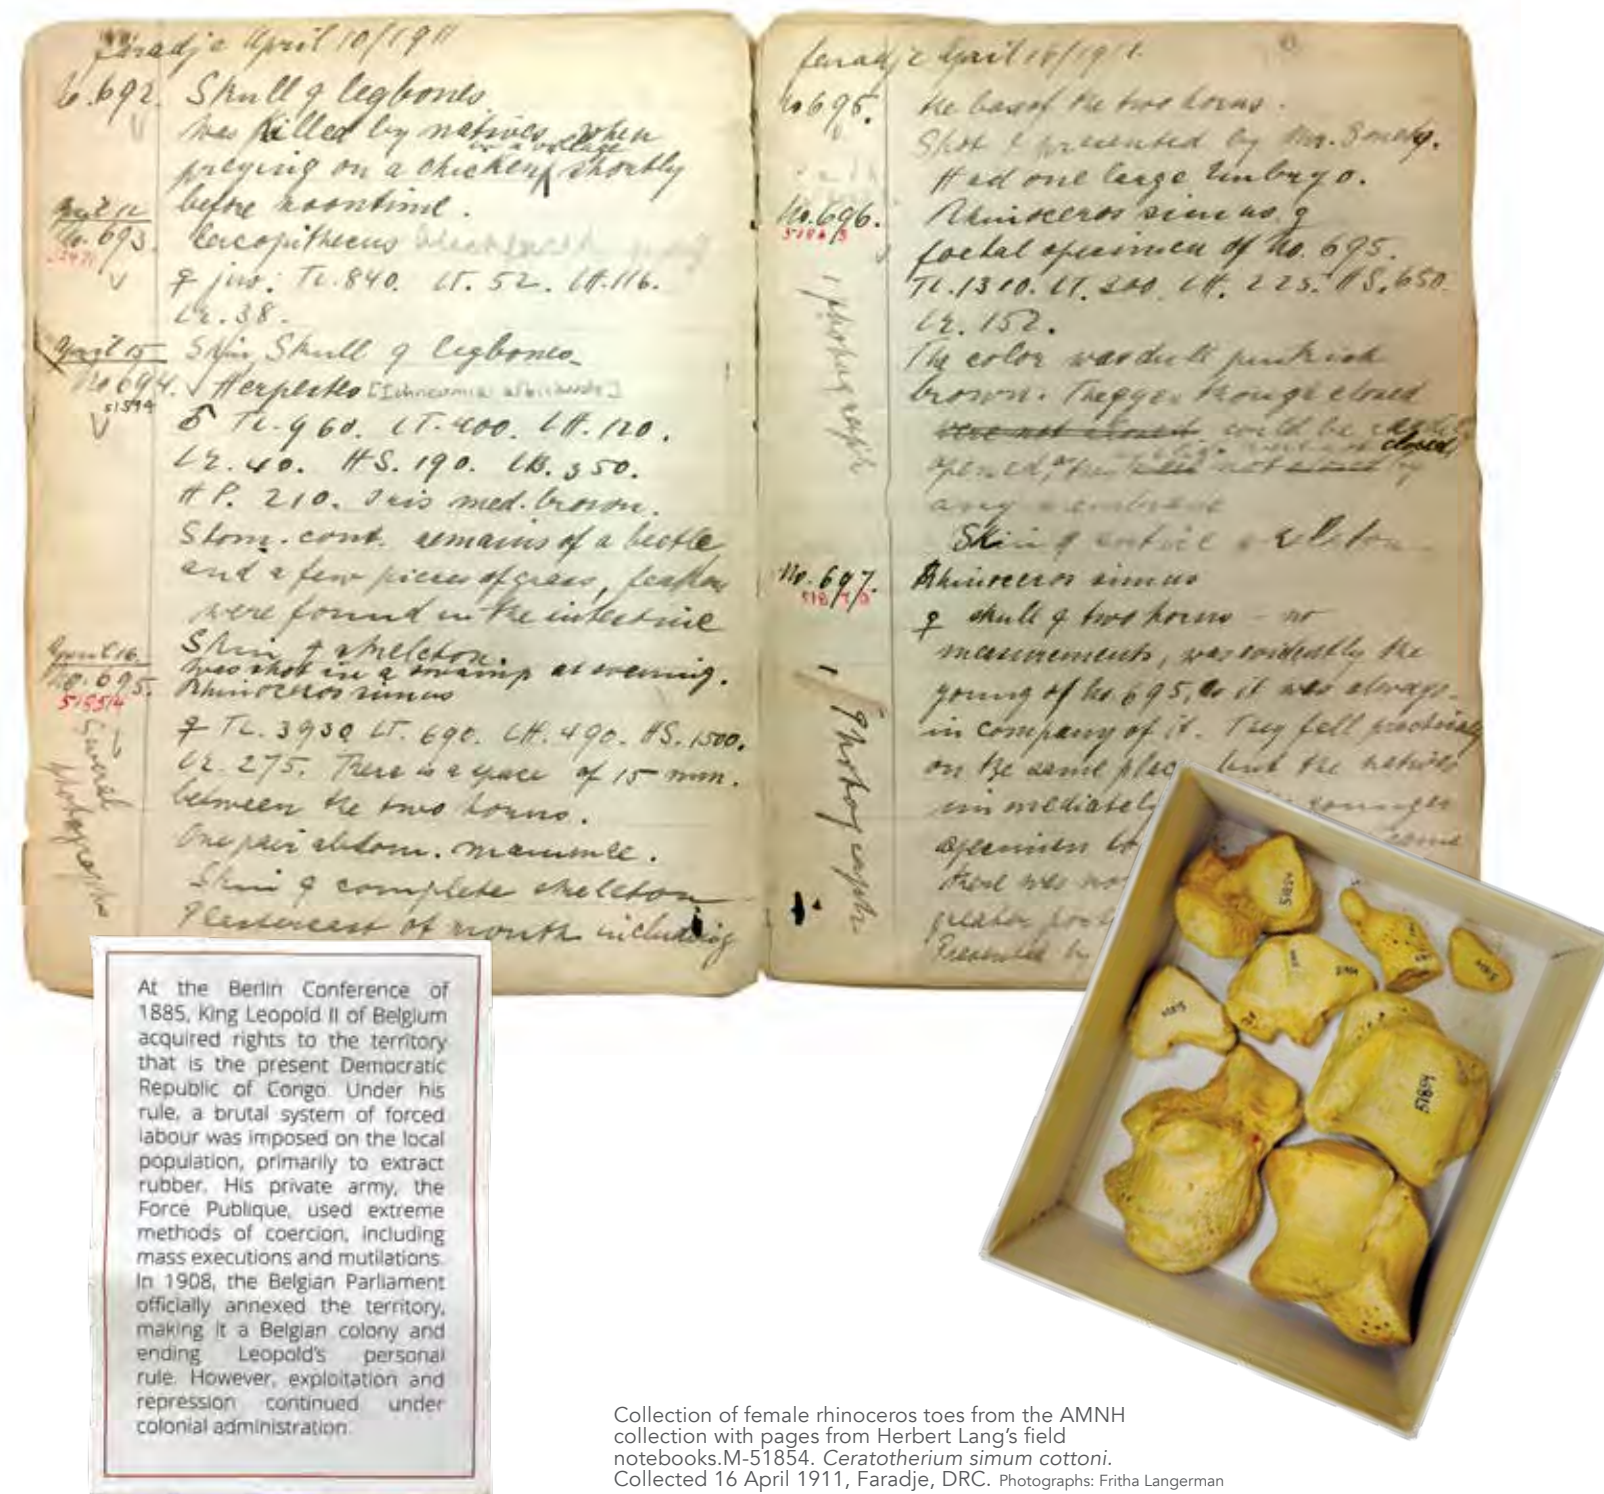 Faradje April 10/1911
No. 692. Skull & legbones.
was killed by natives, when
in a village
preying on a chicken shortly
before noontime.
April 12
No. 693. Cercopithecus
♀ juv: TL. 840. LT. 52. LH. 116.
LE. 38.
Skin, Skull & legbones
April 15
No 694. Herpestes
51594
♂ TL. 960. LT. 400. LH. 120.
LE. 40. HS. 190. LB. 350.
HP. 210. Iris med. brown.
Stom. cont. remains of a beetle
and a few pieces of grass, feathers
were found in the intestine
Skin & skeleton.
was shot in a swamp at evening.
April 16.
No. 695. Rhinoceros simus
51854
♀ TL. 3930 LT. 690. LH. 490. HS. 1500.
LE. 275. There is a space of 15 mm.
between the two horns.
One pair abdom. mammae.
Skin & complete skeleton
Plastercast of mouth including
Several
photographs
Faradje April 16/1911.
No 695. the base of the two horns.
Shot & presented by Mr.
Had one large Embryo.
No. 696. Rhinoceros simus ♀
foetal specimen of No. 695.
TL. 1310. LT. 200. LH. 225. HS. 650.
LE. 152.
The color was dull pinkish
brown. The eyes though closed
were not closed could be
closed,
opened, as not by
any membrane
Skin & entire skeleton
1 photograph
No. 697. Rhinoceros simus
♀ skull & two horns – no
measurements, was evidently the
young of No 695, as it was always
in company of it. They fell practically
on the same place but the natives
immediately younger
specimen
there was no
greater
Presented
1 Photograph
At the Berlin Conference of
1885, King Leopold II of Belgium
acquired rights to the territory
that is the present Democratic
Republic of Congo. Under his
rule, a brutal system of forced
labour was imposed on the local
population, primarily to extract
rubber. His private army, the
Force Publique, used extreme
methods of coercion, including
mass executions and mutilations.
In 1908, the Belgian Parliament
officially annexed the territory,
making it a Belgian colony and
ending Leopold's personal
rule. However, exploitation and
repression continued under
colonial administration.
51854
51854
Collection of female rhinoceros toes from the AMNH
collection with pages from Herbert Lang's field
notebooks.M-51854. Ceratotherium simum cottoni.
Collected 16 April 1911, Faradje, DRC. Photographs: Fritha Langerman